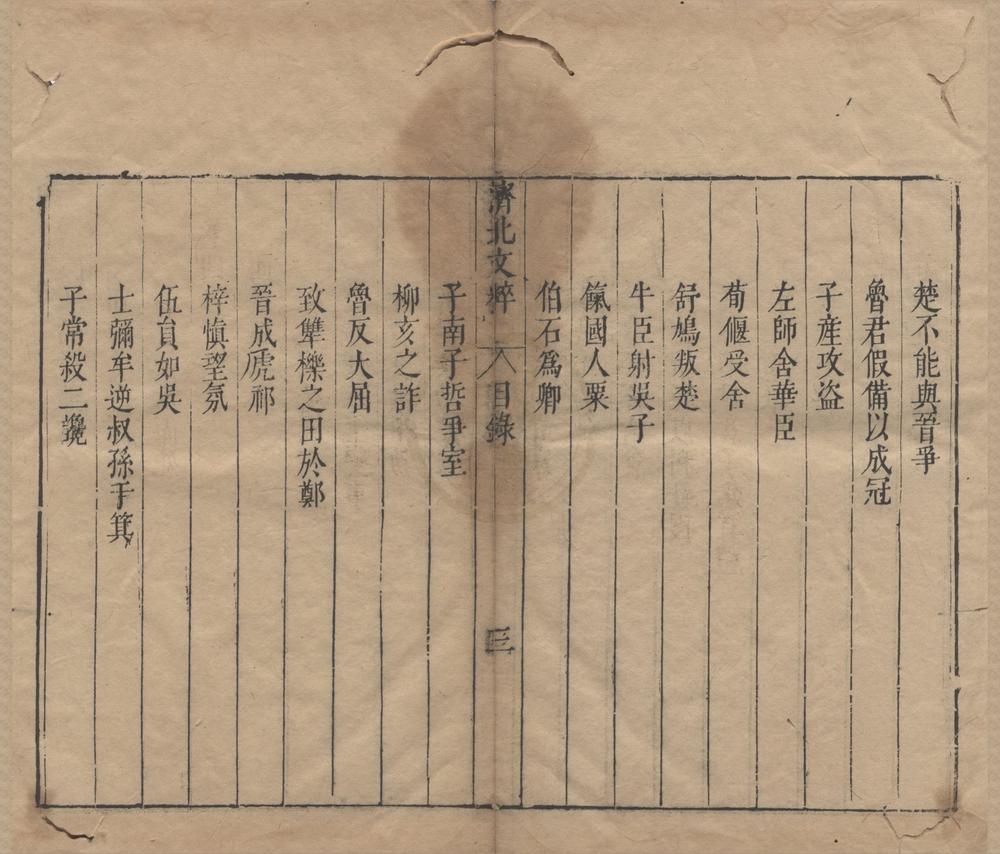 楚不能與晉爭
魯君假備以成冠
子產攻盜
左師舍華臣
荀偃受舍
舒鳩叛楚
牛臣射吳子
餼國人粟
伯石爲卿
濟北文粹 目錄 三
子南子晳爭室
柳亥之詐
魯反大屈
致犫櫟之田於鄭
晉成虒祁
梓慎望氛
伍員如吳
士彌牟逆叔孫于箕
子常殺二讒